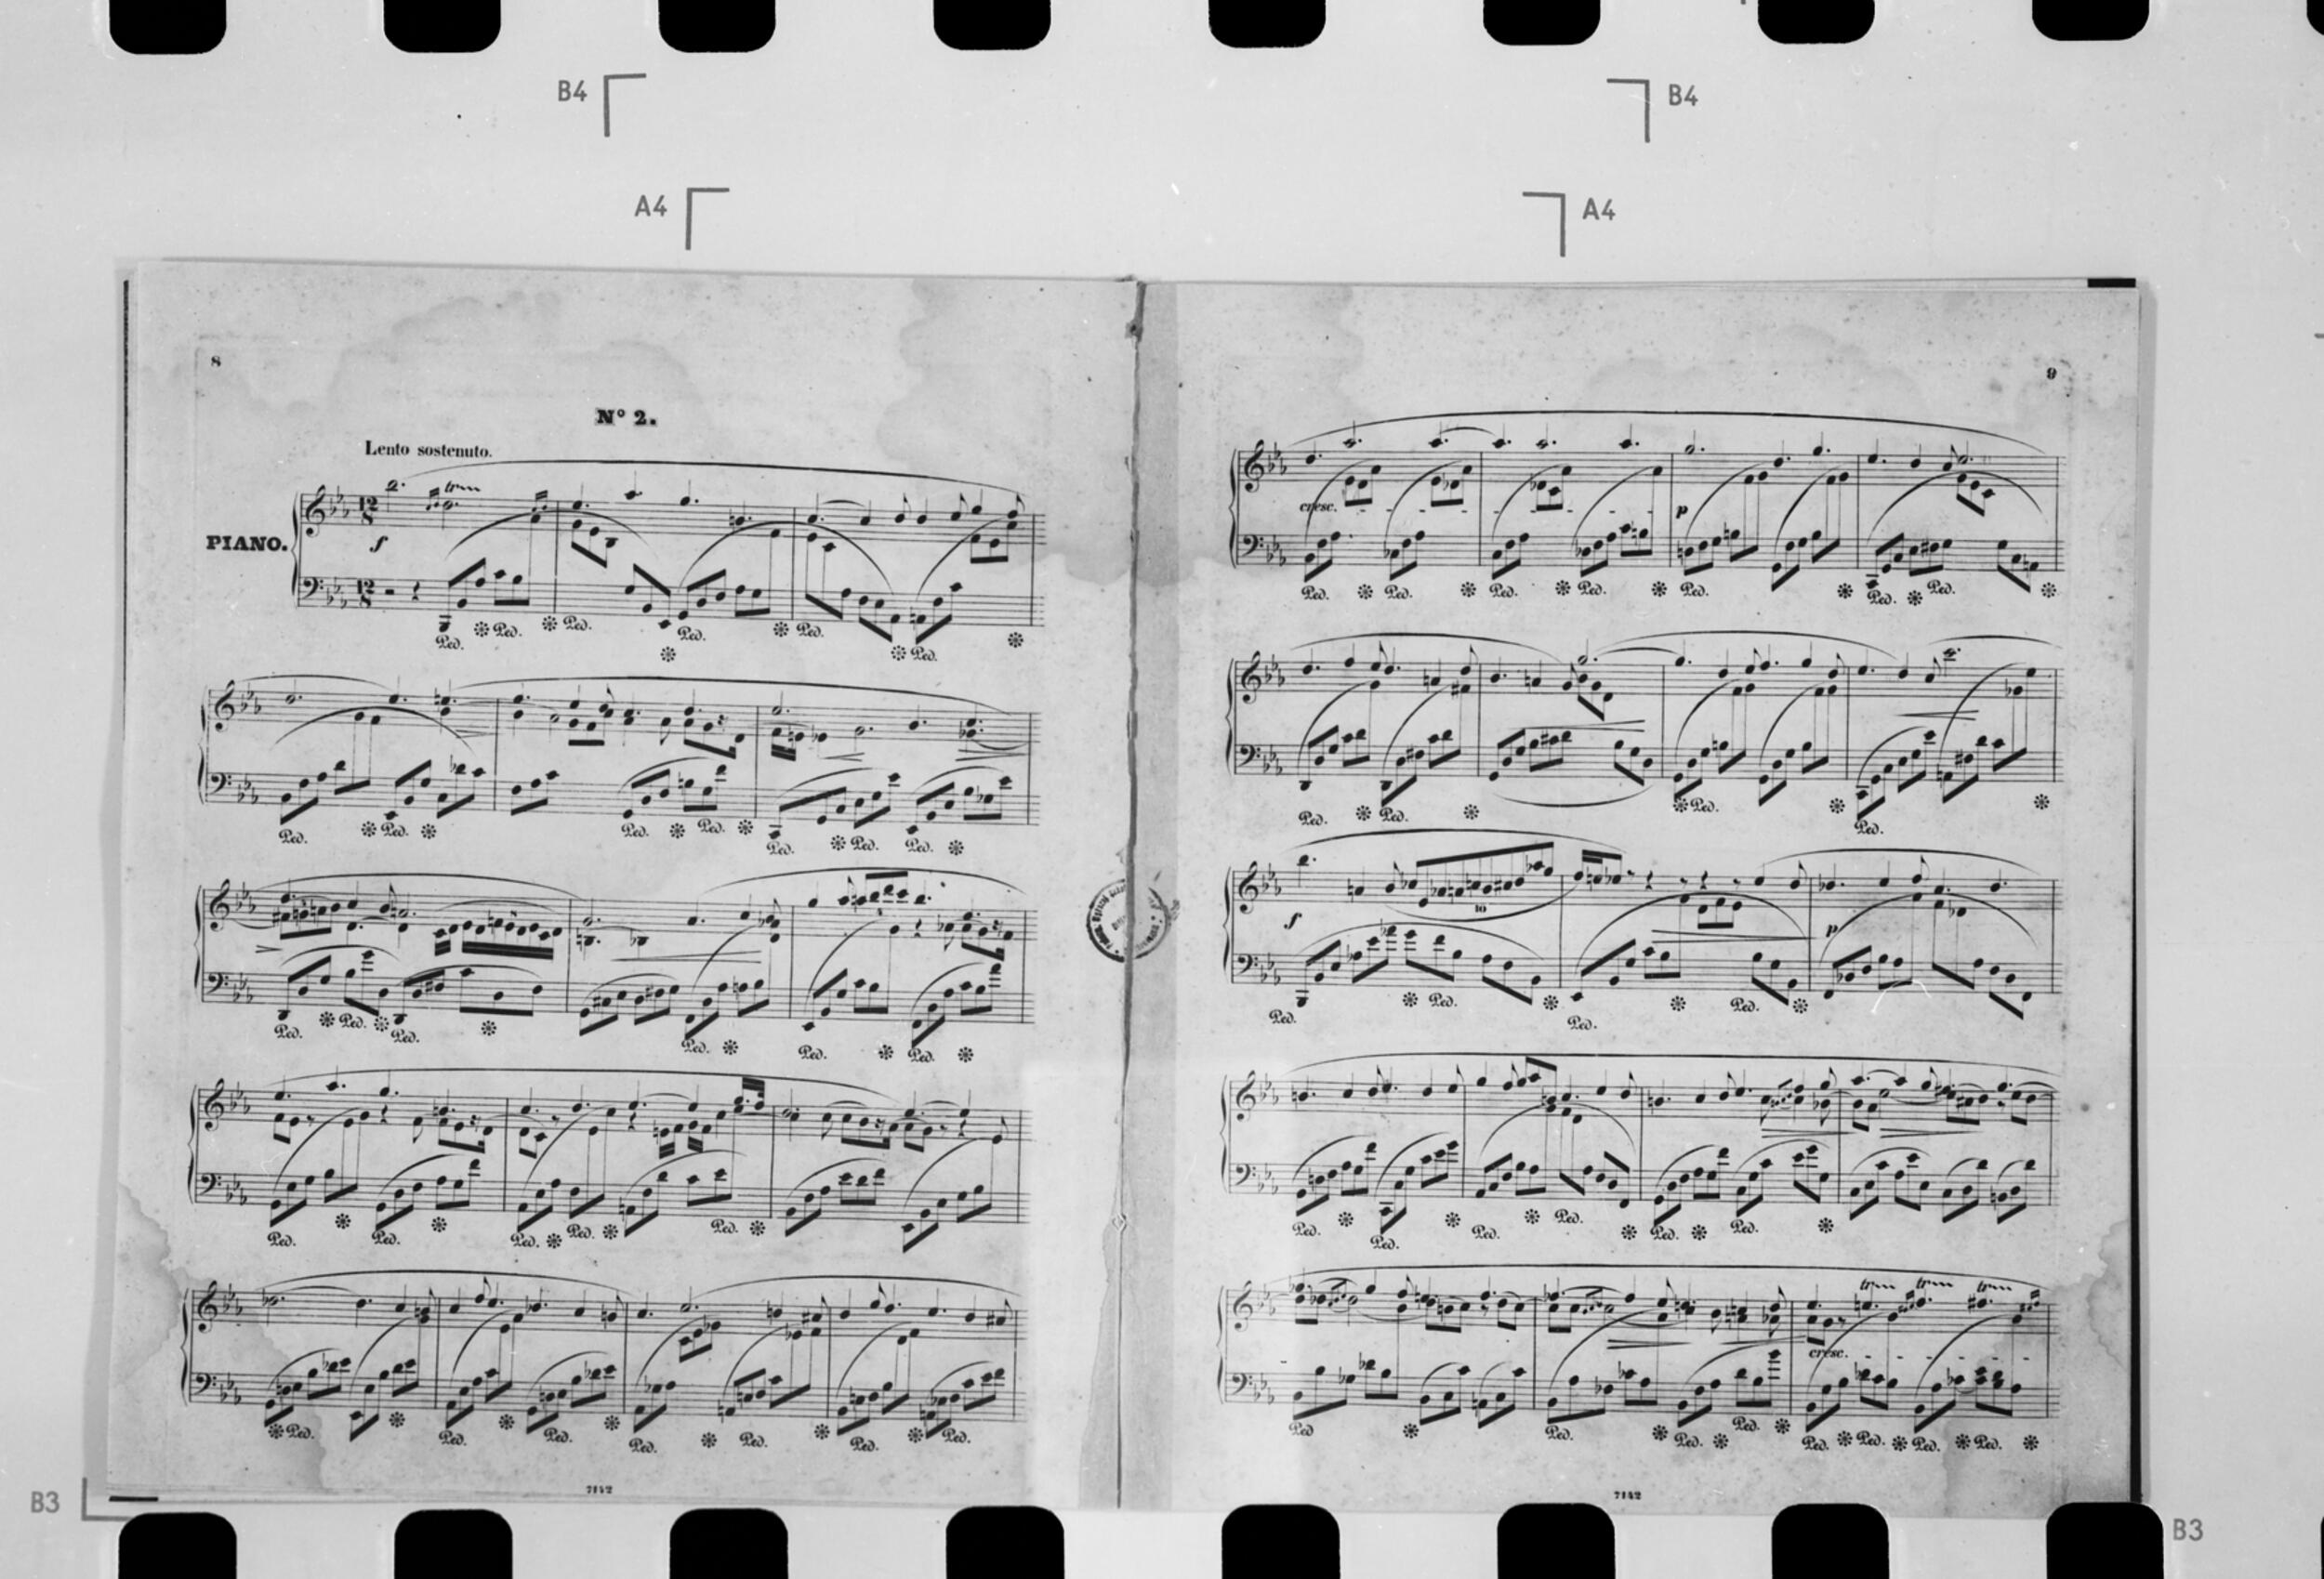 B4
B4
A4
A4
8
N° 2.
Lento sostenuto.
PIANO.
12
8
f
tr
12
8
Ped. Ped. Ped. Ped. Ped. Ped.
Ped. Ped. Ped. Ped. Ped. Ped. Ped.
Ped. Ped. Ped. Ped. Ped. Ped.
Ped. Ped. Ped. Ped. Ped.
Ped. Ped. Ped. Ped. Ped. Ped. Ped.
7142
9
cresc.
p
Ped. Ped. Ped. Ped. Ped. Ped. Ped.
Ped. Ped. Ped. Ped.
f
10
p
Ped. Ped. Ped. Ped.
Ped. Ped. Ped. Ped. Ped. Ped.
tr tr tr
cresc.
Ped Ped. Ped. Ped. Ped. Ped. Ped. Ped.
7142
B3
B3